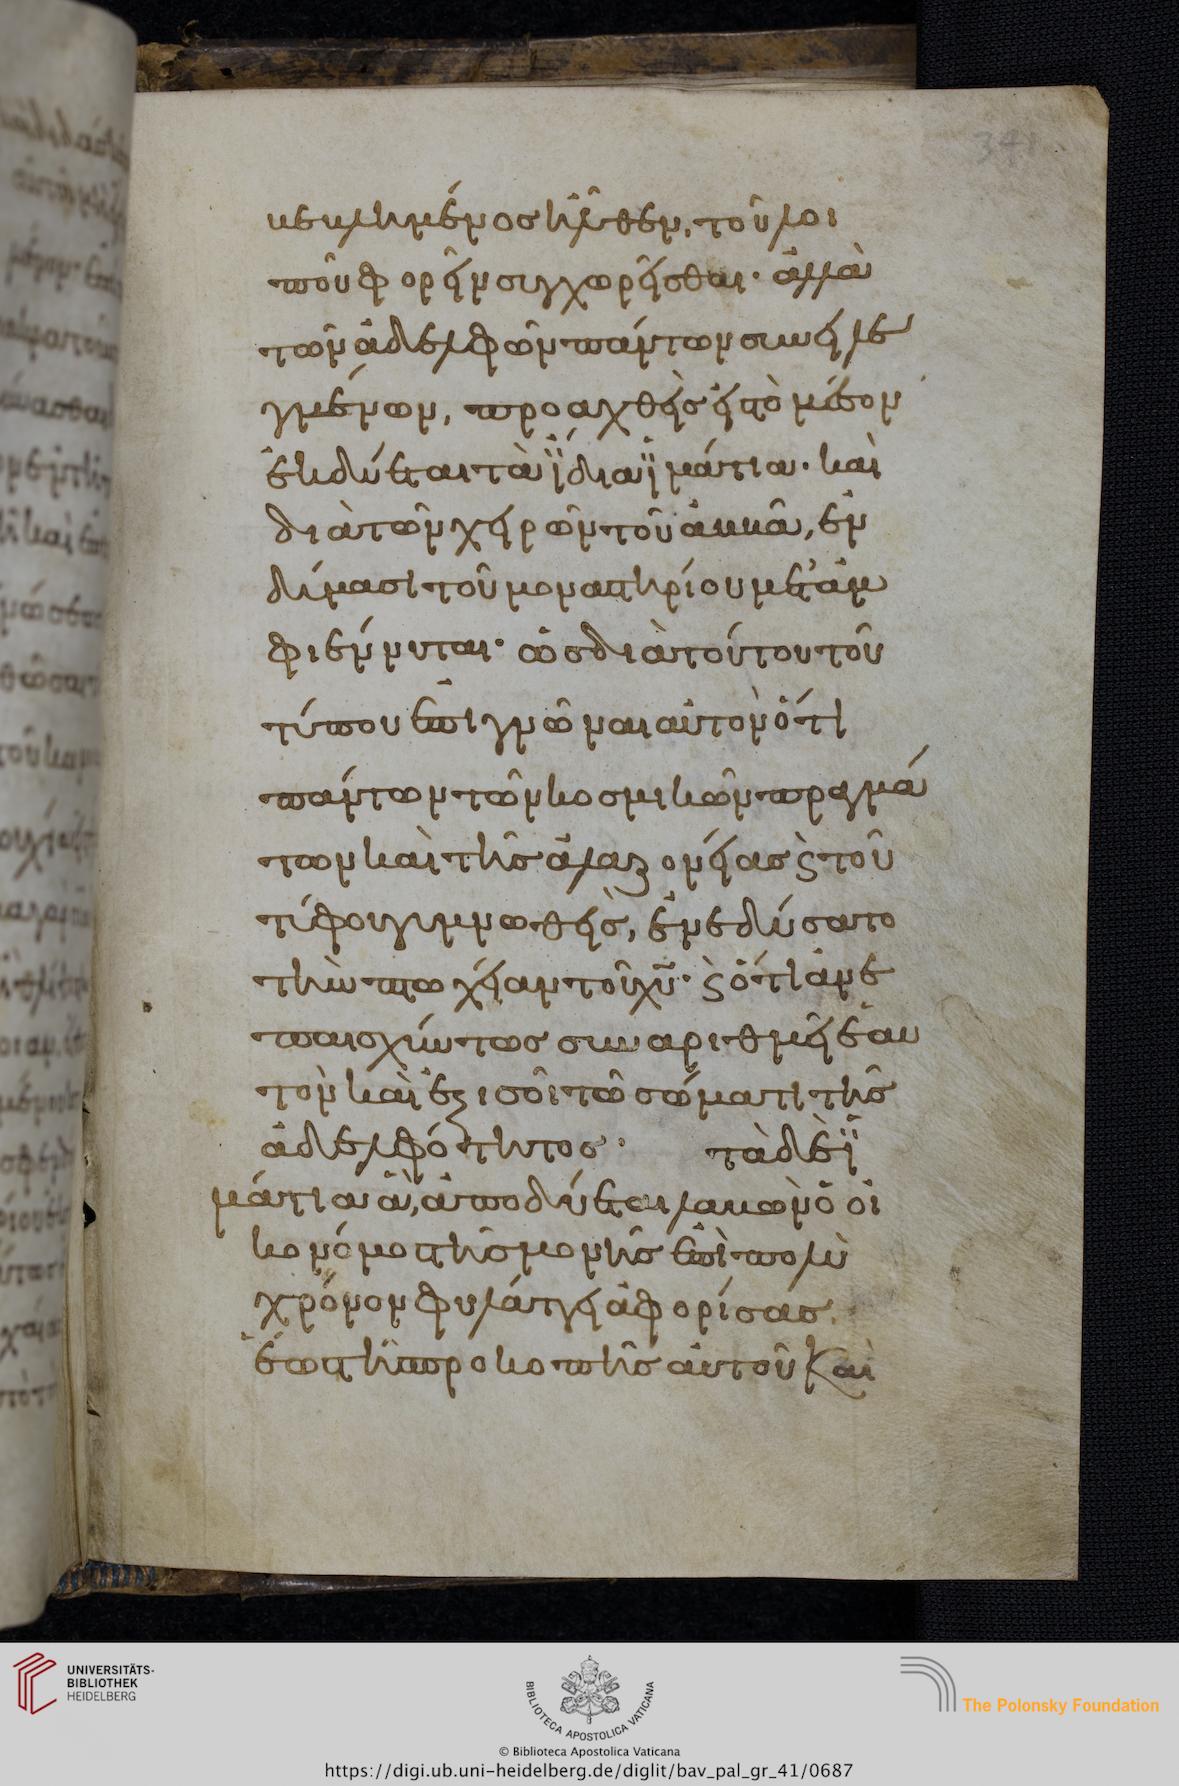 341
κεκλημένος ἦλθεν, τοῦ λοι
ποῦ φορεῖν συγχωρεῖσθαι· ἀλλὰ
τῶν ἀδελφῶν πάντων συνειλε
γμένων, προαχθεὶς εἰς τὸ μέσον
ἐκδύεται τὰ ἴδια ἱμάτια· καὶ
διὰ τῶν χειρῶν τοῦ ἀββᾶ, ἐν
δύμασι τοῦ μοναστηρίου μεταμ
φιέννυται· ὡς διὰ τούτου τοῦ
τύπου ἐπιγνῶναι αὐτὸν ὅτι
πάντων τῶν κοσμικῶν πραγμά
των καὶ τῆς ἀλαζονείας ϗ τοῦ
τύφου γυμνωθεὶς, ἐνεδύσατο
τὴν πτωχείαν τοῦ χυ· ϗ ὅτι ἀνε
παισχύντως συναριθμεῖ ἑαυ
τὸν καὶ ἐξισοῖ τῷ σώματι τῆς
ἀδελφότητος· τὰ δὲ ἱ
μάτια ἃ, ἀποδύεται λαβὼν ὁ οἰ
κονόμος τῆς μονῆς ἐπὶ πολὺ
χρόνον φυλάττει ἀφορίσας.
ἕως τῆς προκοπῆς αὐτοῦ καὶ
UNIVERSITÄTS-
BIBLIOTHEK
HEIDELBERG
BIBLIOTECA APOSTOLICA VATICANA
The Polonsky Foundation
© Biblioteca Apostolica Vaticana
https://digi.ub.uni-heidelberg.de/diglit/bav_pal_gr_41/0687